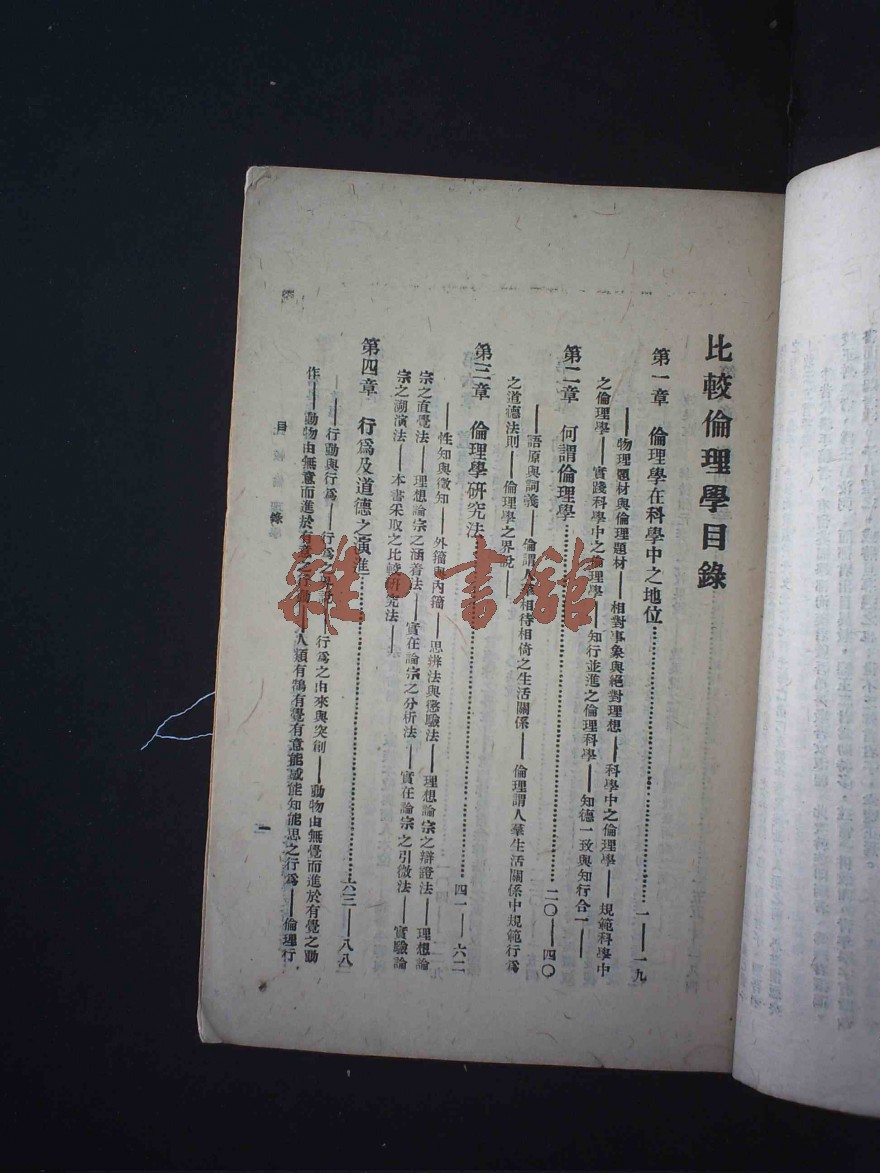 比較倫理學目錄
第一章 倫理學在科學中之地位………一——一九
——物理題材與倫理題材——相對事象與絕對理想——科學中之倫理學——規範科學中
之倫理學——實踐科學中之倫理學——知行並進之倫理科學——知德一致與知行合一——
第二章 何謂倫理學………二〇——四〇
——語原與詞義——倫謂人羣相待相倚之生活關係——倫理謂人羣生活關係中規範行爲
之道德法則——倫理學之界說——
第三章 倫理學研究法………四一——六二
——性知與徵知——外籀與內籀——思辨法與懲驗法——理想論宗之辯證法——理想論
宗之直覺法——理想論宗之涵養法——實在論宗之分析法——實在論宗之引徵法——實驗論
宗之溯演法——本書采取之比較研究法——
第四章 行爲及道德之演進………六三——八八
——行動與行爲——行爲之——行爲之由來與突創——動物由無覺而進於有覺之動
作——動物由無意而進於有意之行動——人類有鵠有覺有意能感能知能思之行爲——倫理行
目錄
一
雜·書館